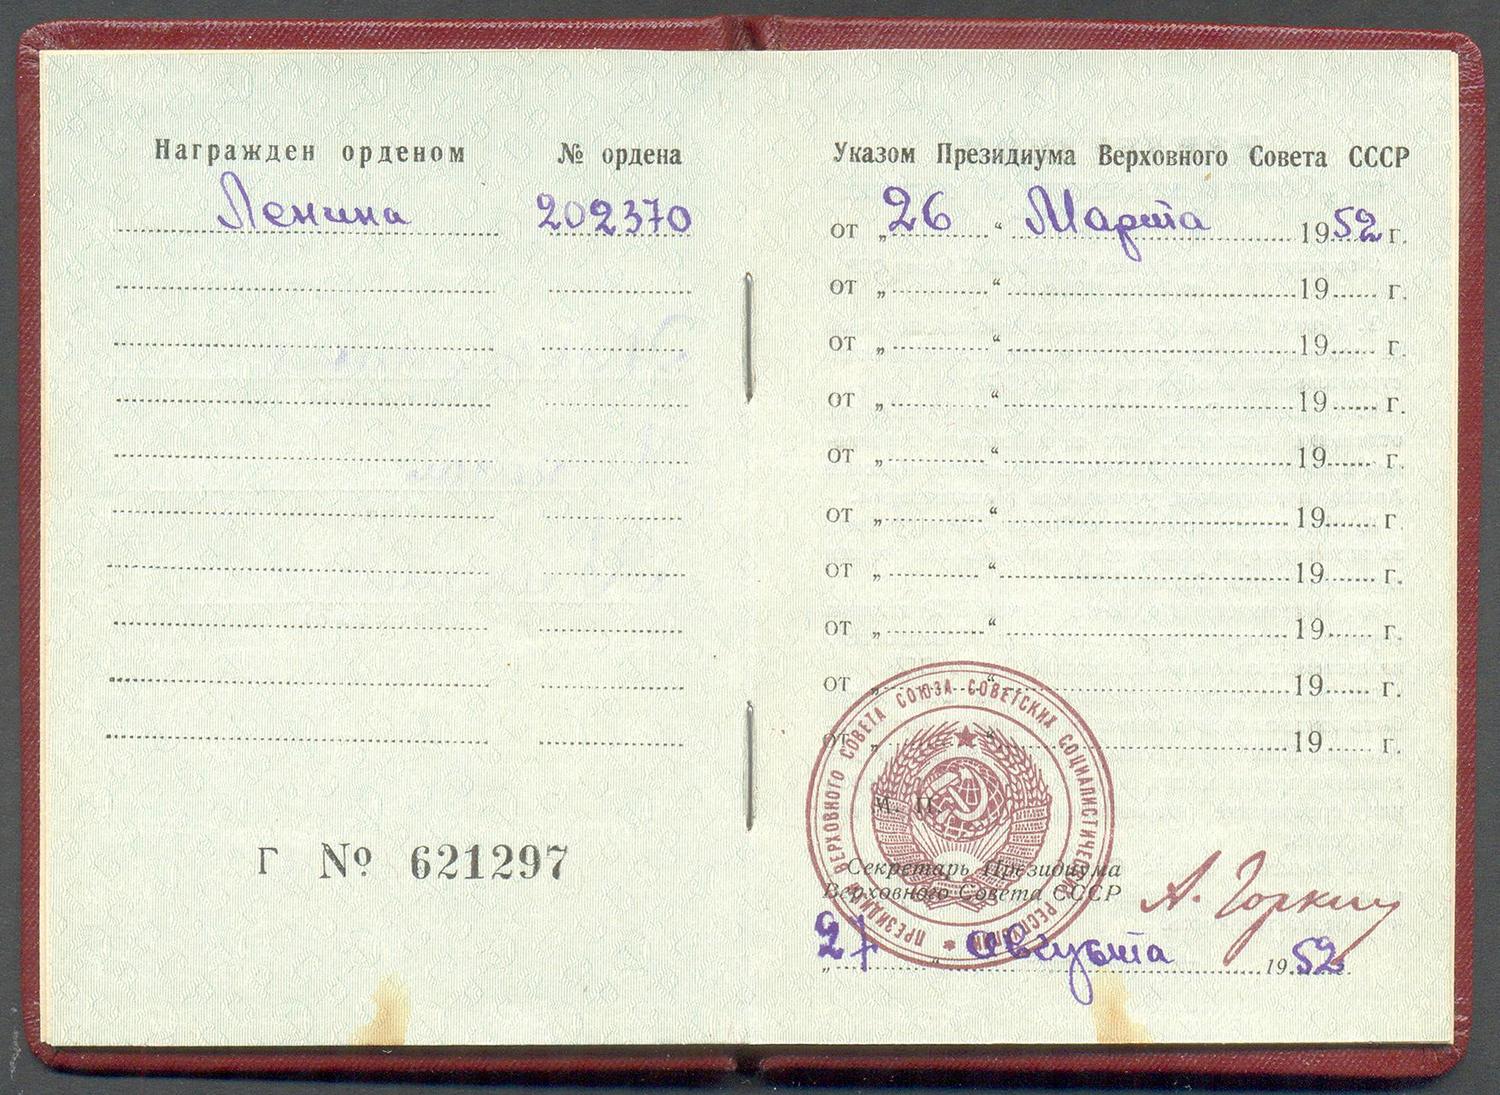 Награжден орденом № ордена
Ленина 202370
Г № 621297
Указом Президиума Верховного Совета СССР
от „26“ Марта 1952 г.
от „ “ 19 г.
от „ “ 19 г.
от „ “ 19 г.
от „ “ 19 г.
от „ “ 19 г.
от „ “ 19 г.
от „ “ 19 г.
от „ “ 19 г.
от „ “ 19 г.
М. П.
ПРЕЗИДИУМ ВЕРХОВНОГО СОВЕТА СОЮЗА СОВЕТСКИХ СОЦИАЛИСТИЧЕСКИХ РЕСПУБЛИК
Секретарь Президиума
Верховного Совета СССР А. Горкин
„27“ Августа 1952 г.